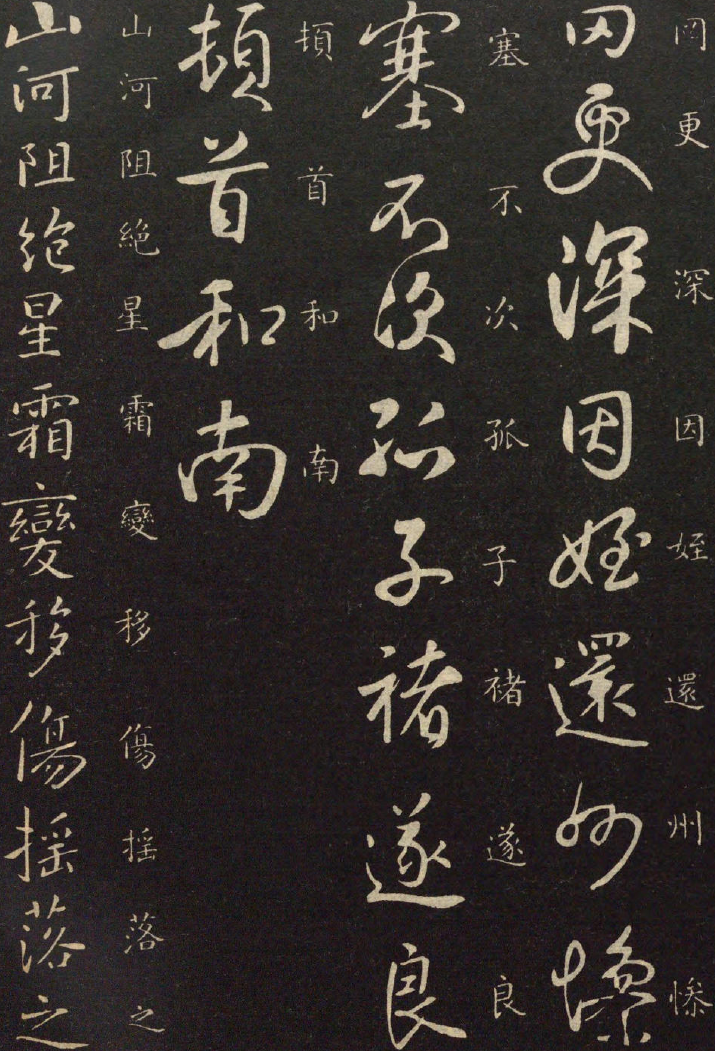 罔更深因姪還州慘
罔更深因姪還州慘
塞不次孤子褚遂良
塞不次孤子褚遂良
頓首和南
頓首和南
山河阻絶星霜變移傷摇落之
山河阻絶星霜變移傷摇落之